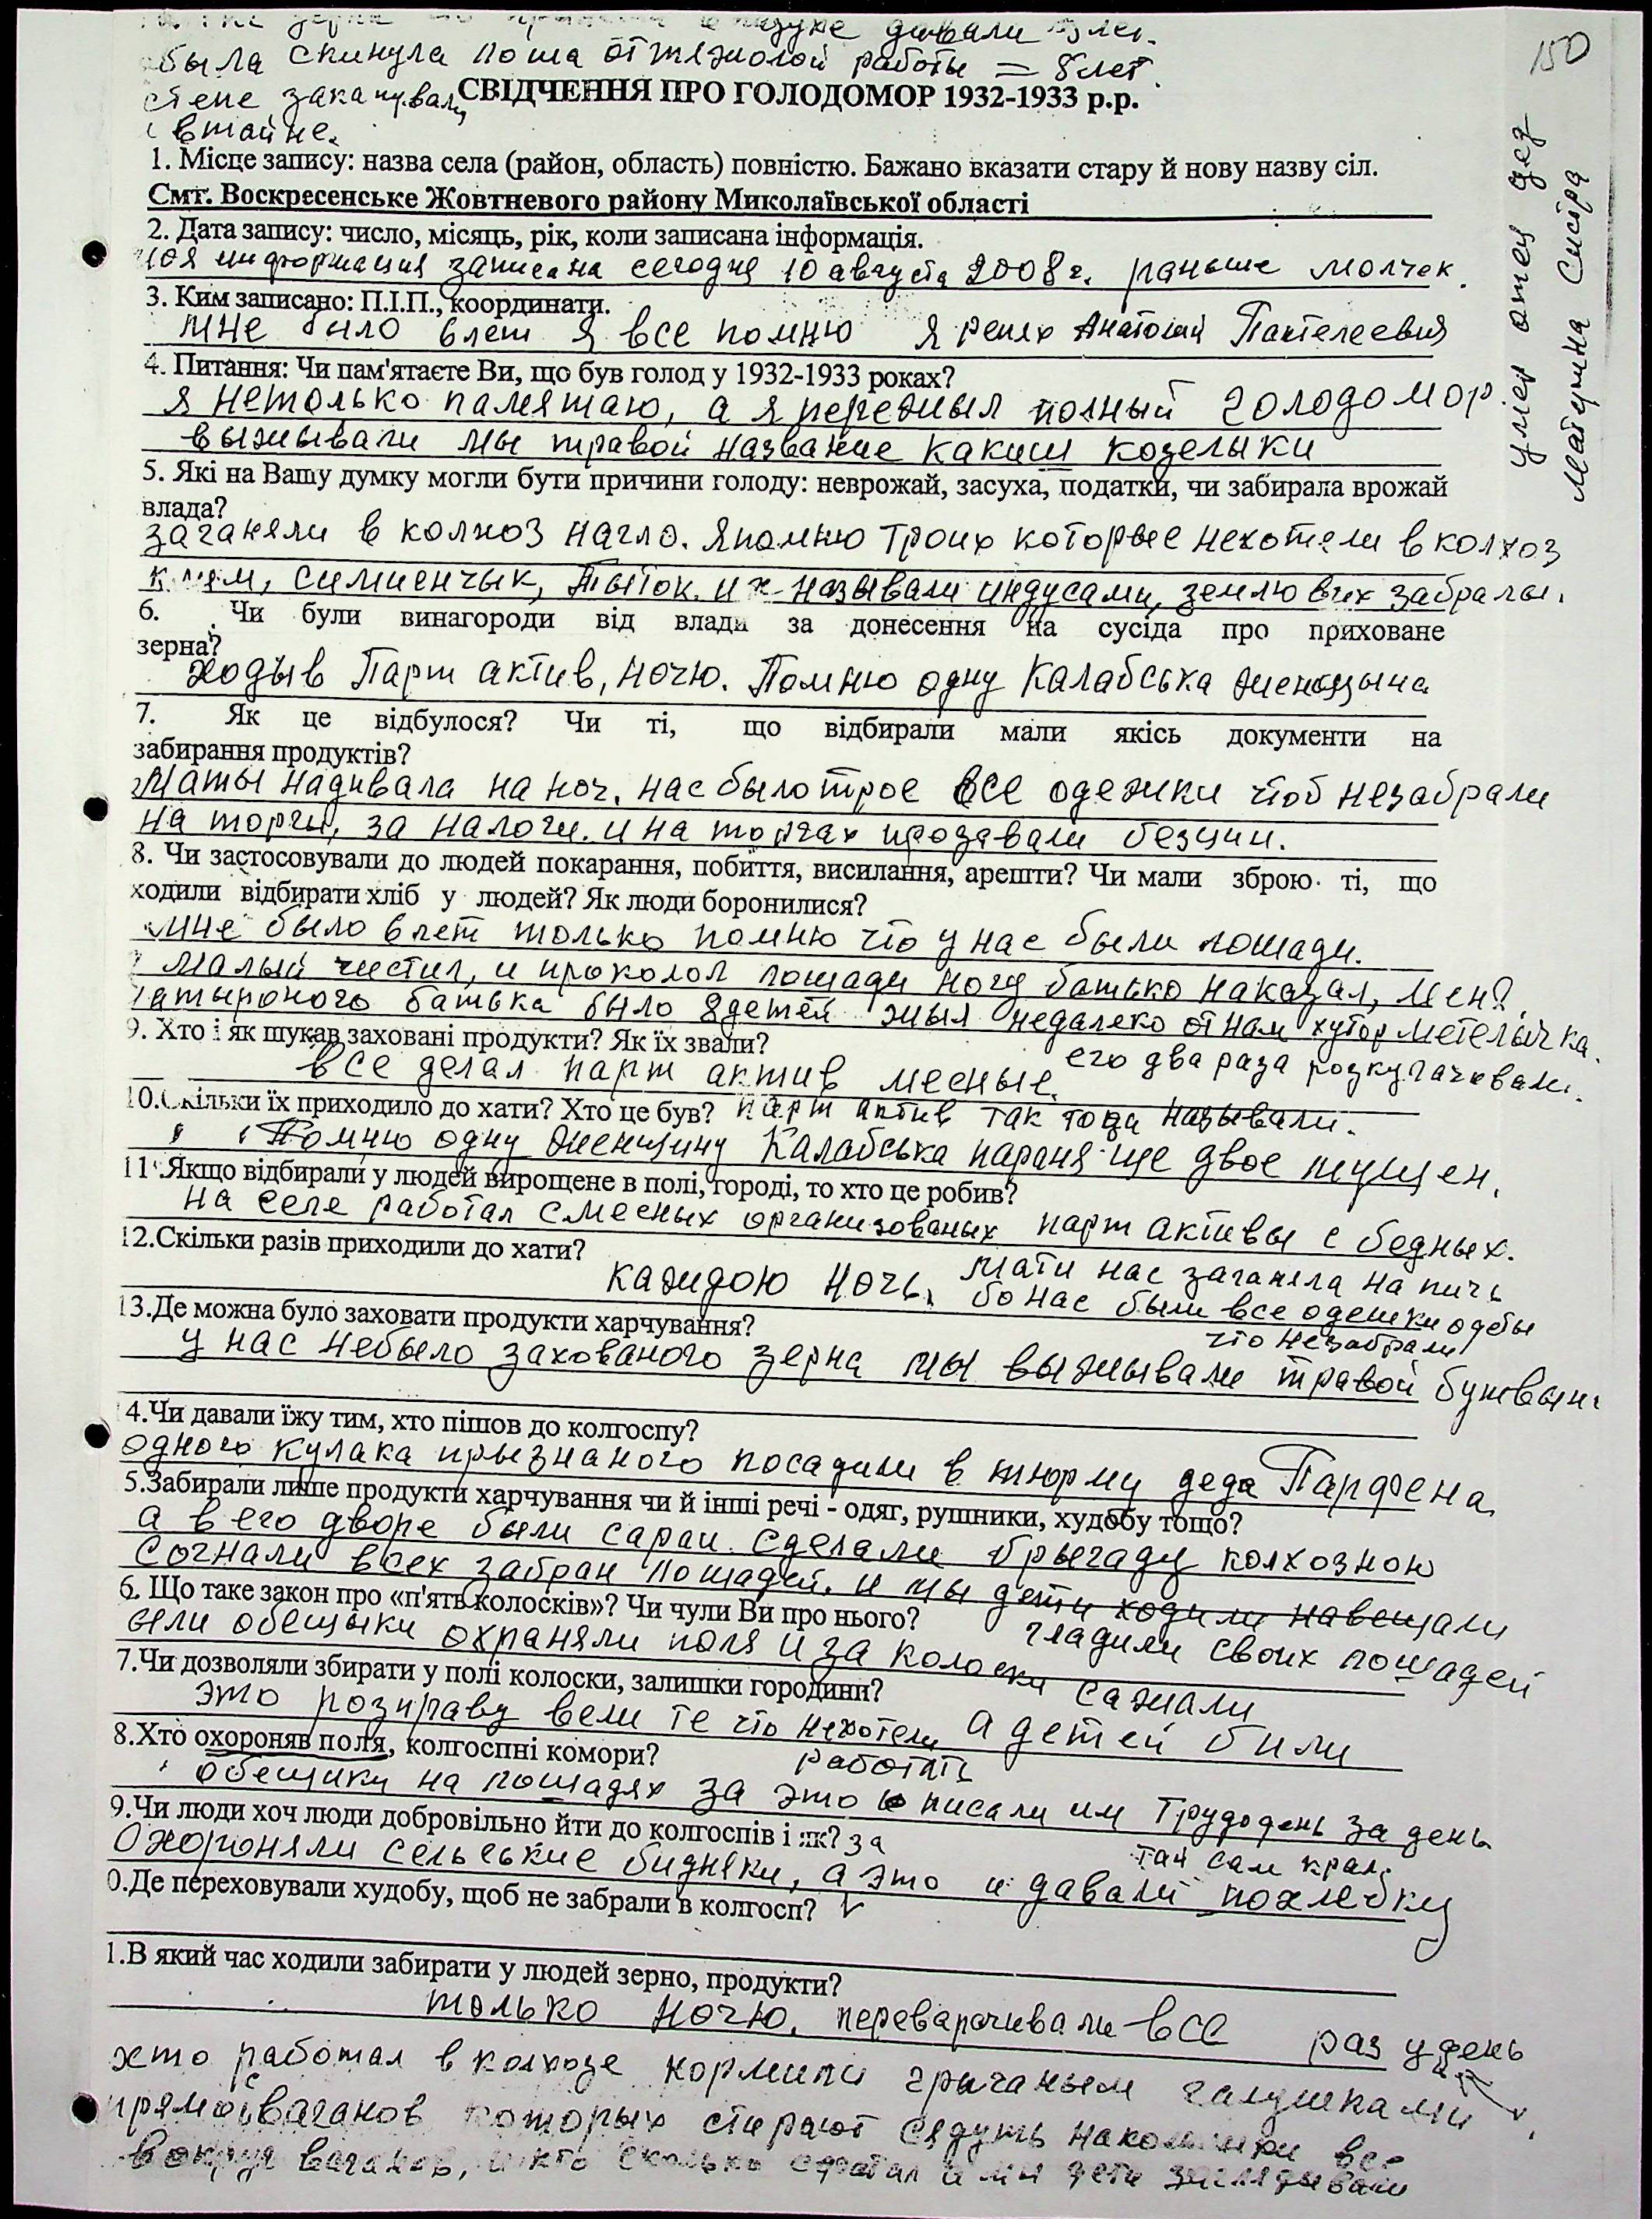 давали
была скинула лоша от тяжолой работы = 8 лет.
степе закапувалы
втайне.
150
СВІДЧЕННЯ ПРО ГОЛОДОМОР 1932-1933 р.р.
умер отец дед
матушна систра
1. Місце запису: назва села (район, область) повністю. Бажано вказати стару й нову назву сіл.
Смт. Воскресенське Жовтневого району Миколаївської області
2. Дата запису: число, місяць, рік, коли записана інформація.
информация записана сегодня 10 августа 2008 г. раньше молчек.
3. Ким записано: П.І.П., координати.
мне было 6 лет я все помню я репях Анатолий Пантелеевич
4. Питання: Чи пам'ятаєте Ви, що був голод у 1932-1933 роках?
я нетолько памятаю, а я пережыл полный голодомор.
выжывали мы травой название какиш козелыки
5. Які на Вашу думку могли бути причини голоду: неврожай, засуха, податки, чи забирала врожай
влада?
заганяли в колхоз нагло. Я помню троих которые нехотели в колхоз
симиенчык, тыток. их называли индусами, землю в них забралы.
6. Чи були винагороди від влади за донесення на сусіда про приховане
зерна?
ходыв Парт актив, ночю. Помню одну Калабська женщына
7. Як це відбулося? Чи ті, що відбирали мали якісь документи на
забирання продуктів?
Маты надивала на ноч. нас было трое все одежки чтоб незабрали
на торги, за налоги. и на торгах продавали безцин.
8. Чи застосовували до людей покарання, побиття, висилання, арешти? Чи мали зброю ті, що
ходили відбирати хліб у людей? Як люди боронилися?
мне было 6 лет только помню что у нас были лошади.
малый чистил, и проколол лошади ногу батько наказал, мен?
батька было 8 детей жыл недалеко от нам хутор метелычка.
9. Хто і як шукав заховані продукти? Як їх звали?
его два раза розкулачювали.
все делал парт актив месные.
10.Скільки їх приходило до хати? Хто це був? парт актив так тода называли.
Помню одну женщину Калабська параня ще двое мущен.
11.Якщо відбирали у людей вирощене в полі, городі, то хто це робив?
на селе работал с месных организованых парт активы с бедных.
12.Скільки разів приходили до хати?
каждою ночь, мати нас заганяла на пичь
бо нас были все одешки одеты
что незабрали
13.Де можна було заховати продукти харчування?
у нас небыло захованого зерна мы выжывали травой
4.Чи давали їжу тим, хто пішов до колгоспу?
одного кулака прызнаного посадили в тюрму деда Парфена
5.Забирали лише продукти харчування чи й інші речі - одяг, рушники, худобу тощо?
а в его дворе были сараи. сделали брыгаду колхозною
согнали всех забран лошадей. и мы дети ходили навещали
6. Що таке закон про «п'ять колосків»? Чи чули Ви про нього?
гладили своих лошадей
были обещыки охраняли поля и за колоски сажали
7.Чи дозволяли збирати у полі колоски, залишки городини?
это розправу вели те что нехотели работать а детей били
8.Хто охороняв поля, колгоспні комори?
обещики на лошадях за это писали им трудодень за день
9.Чи люди хоч люди добровільно йти до колгоспів і як? за
так сам крал.
Охороняли сельские бидняки, а это и давали похлебку
0.Де переховували худобу, щоб не забрали в колгосп? v
1.В який час ходили забирати у людей зерно, продукти?
только ночю. переварачивали все раз у день
хто работал в колхозе кормили грычаным галушками
прямо с ваганов которых стирают сядуть
вокруг ваганов, и кто сколько а мы дети заглядывали